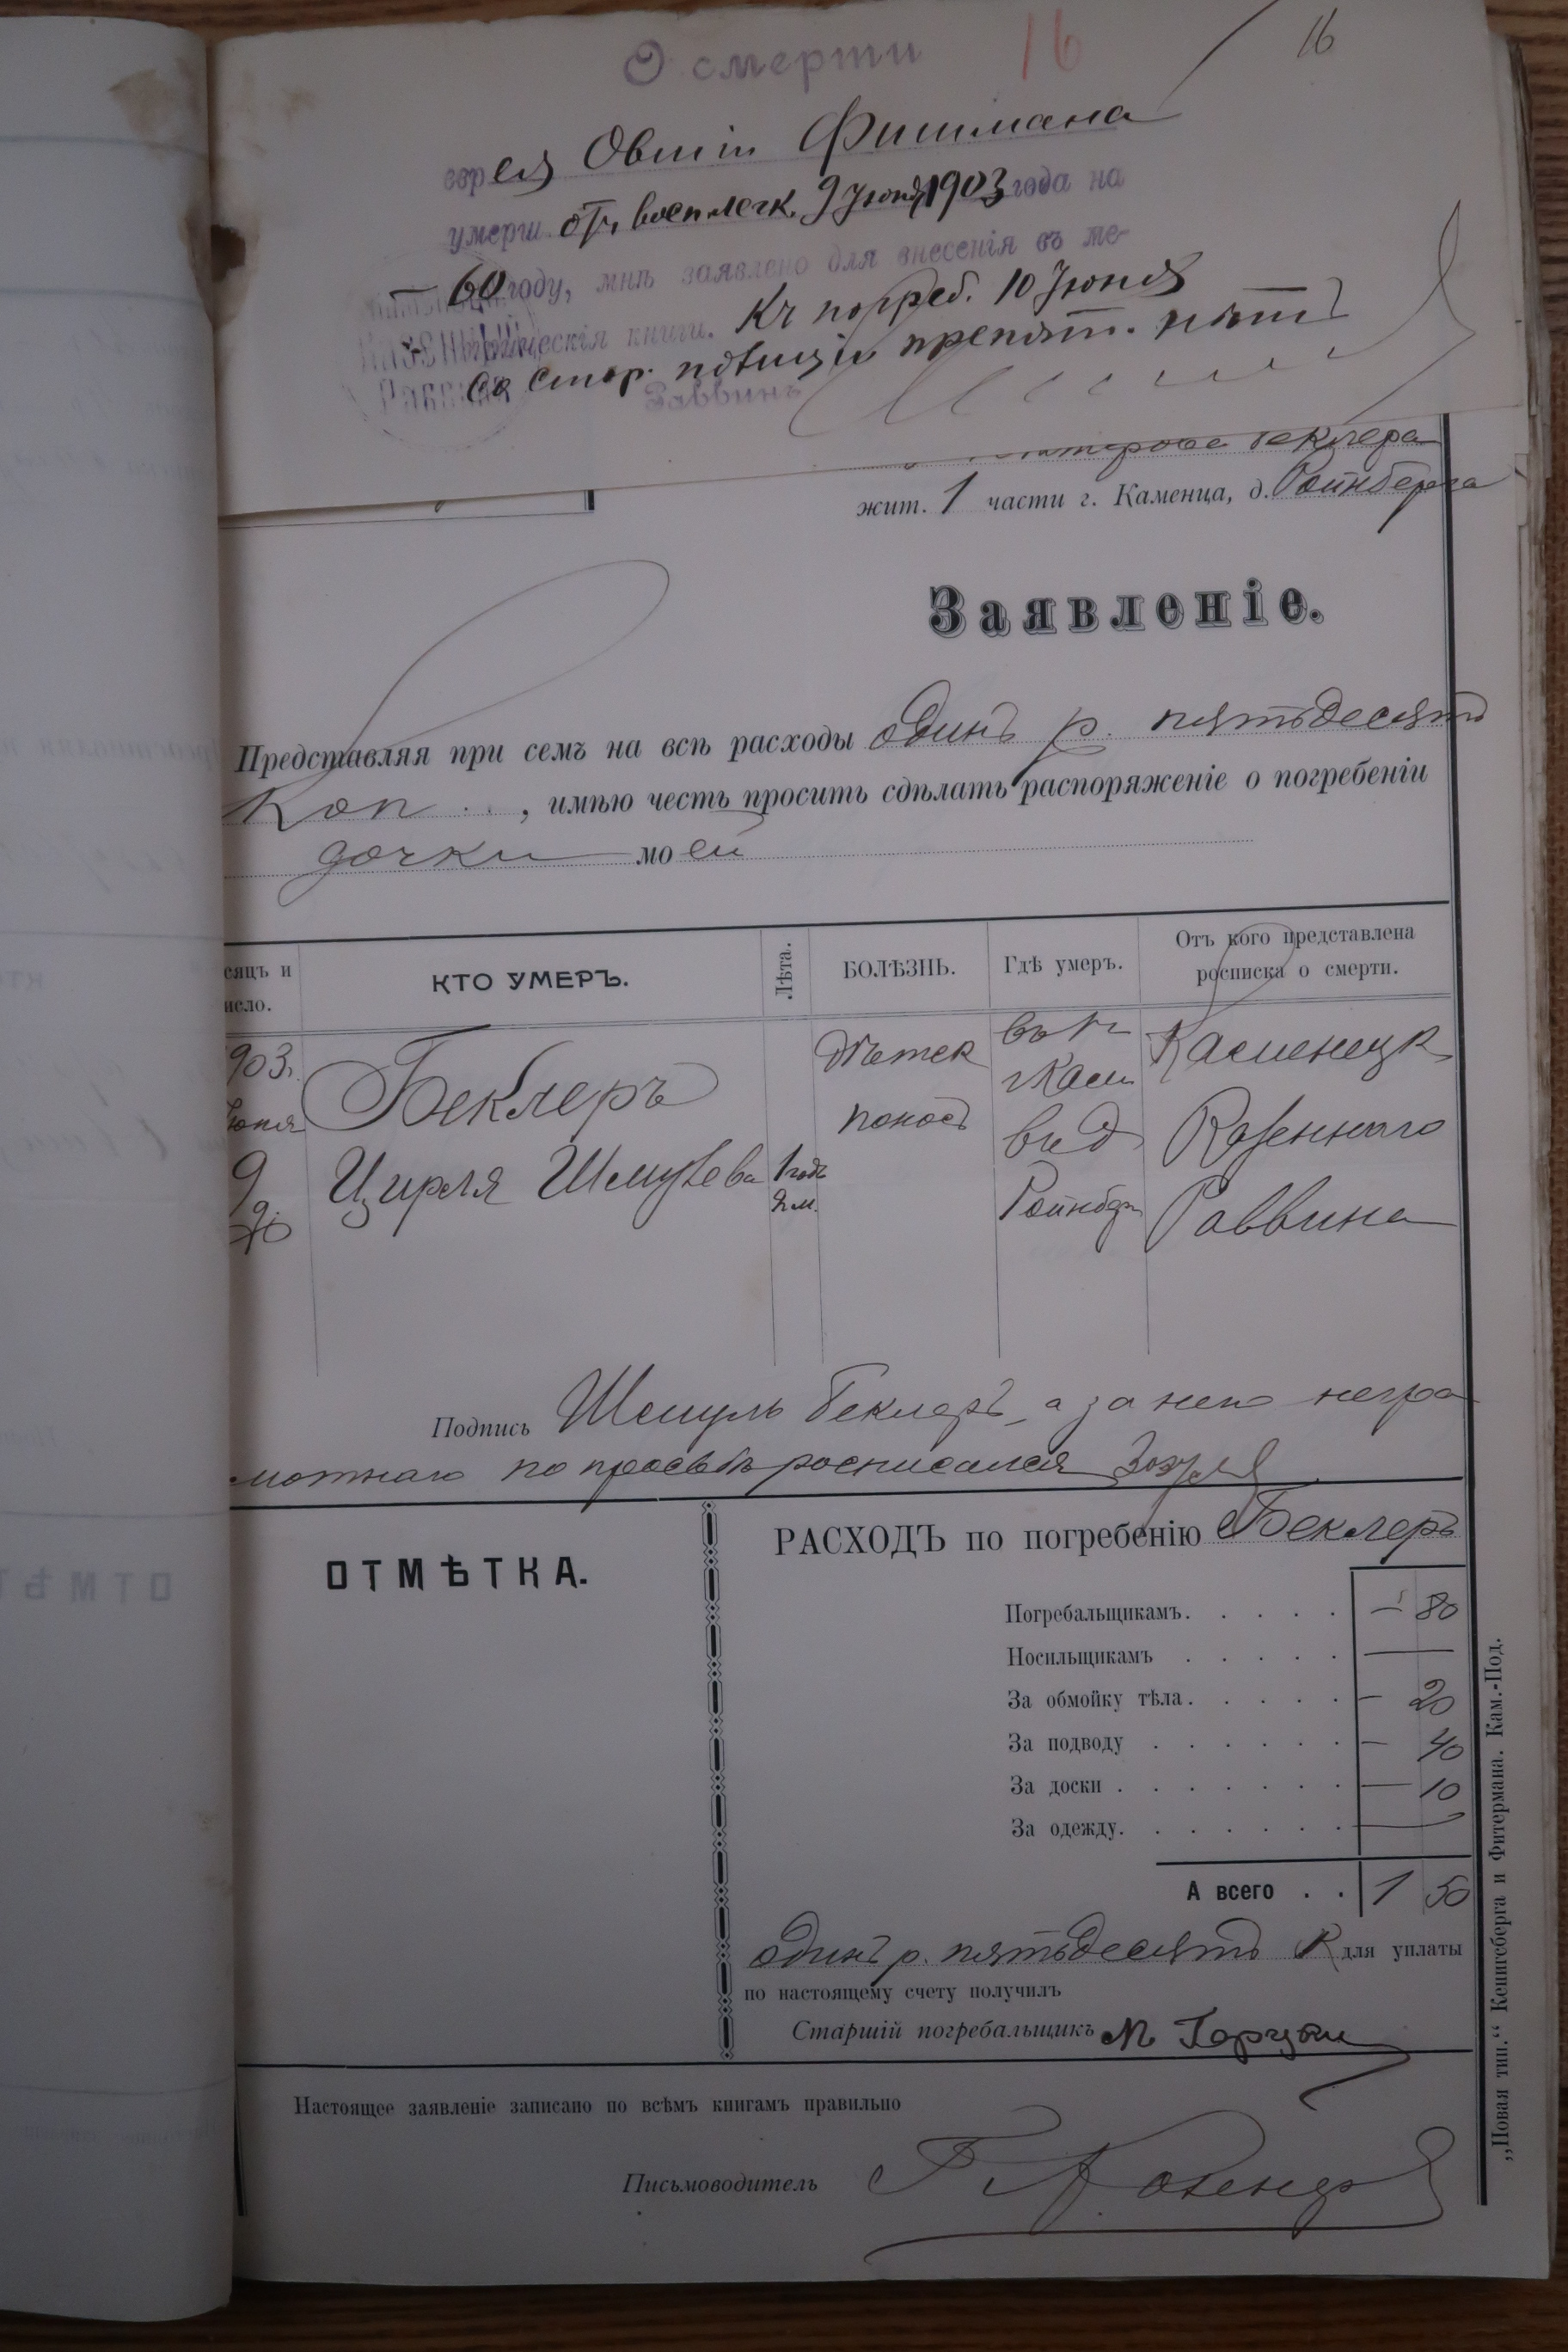 О смерти 16 16
еврея Овшiи Фишмана
умерш. отъ восп. легк. 9 Іюня 1903 года на
60 году, мнѣ заявлено для внесенія въ ме-
трическія книги. Къ погреб. 10 Іюня
Со стор. полиціи препят. нѣтъ
Раввинъ
Беклера
жит. 1 части г. Каменца, д. Ройнберга
Заявленіе.
Представляя при семъ на всѣ расходы одинъ р. пятьдесятъ
коп., имѣю честь просить сдѣлать распоряженіе о погребеніи
дочки моей
сяцъ и исло.
КТО УМЕРЪ.
Лѣта.
БОЛѢЗНЬ.
Гдѣ умеръ.
Отъ кого представлена росписка о смерти.
903 г. Беклеръ дѣтск въ г. Каменецк.
Іюня поносъ Кам. Казеннаго
9 Цирля Шмулева 1 годъ въ д. Раввина
2 м. Ройнбер
Подпись Шмуль Беклеръ, а за него негра
мотнаго по просьбѣ росписался
ОТМѢТКА.
РАСХОДЪ по погребенію Беклеръ
Погребальщикамъ. . . . . — 80
Носильщикамъ . . . . . —
За обмойку тѣла. . . . . — 20
За подводу . . . . . . — 40
За доски . . . . . . . — 10
За одежду. . . . . . . —
А всего . . 1 50
одинъ р. пятьдесятъ к для уплаты
по настоящему счету получилъ
Старшій погребальщикъ М
Настоящее заявленіе записано по всѣмъ книгамъ правильно
Письмоводитель
„Новая тип." Кенигсберга и Фитермана. Кам.-Под.